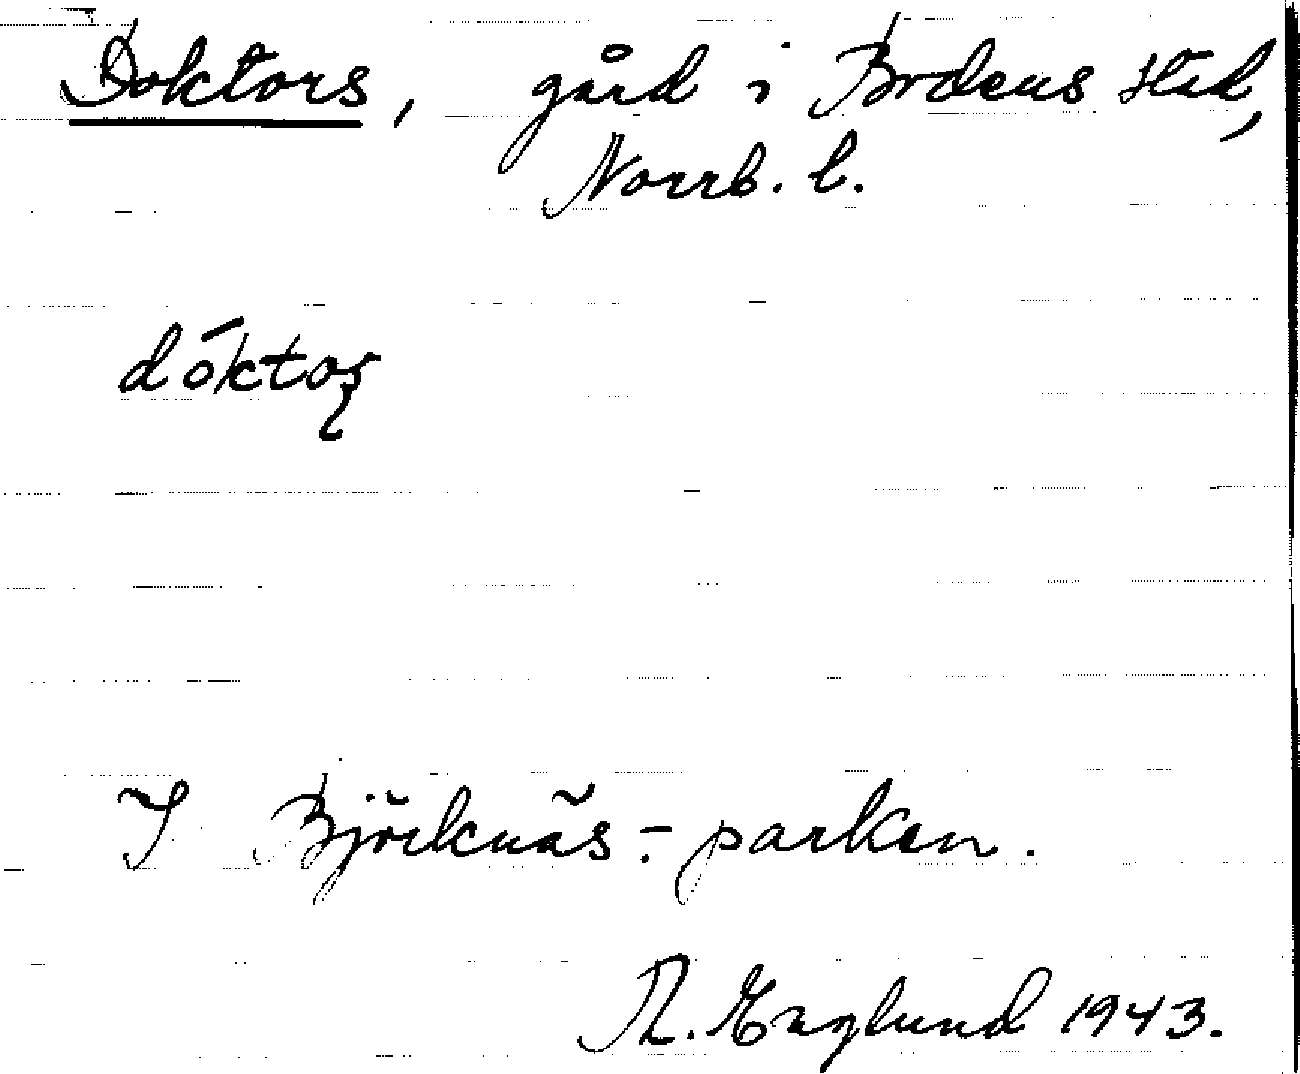 Doktors, gård i Bodens stad,
Norrb. l.
dóktoş
I Björknäs-parken.
R. Englund 1943.